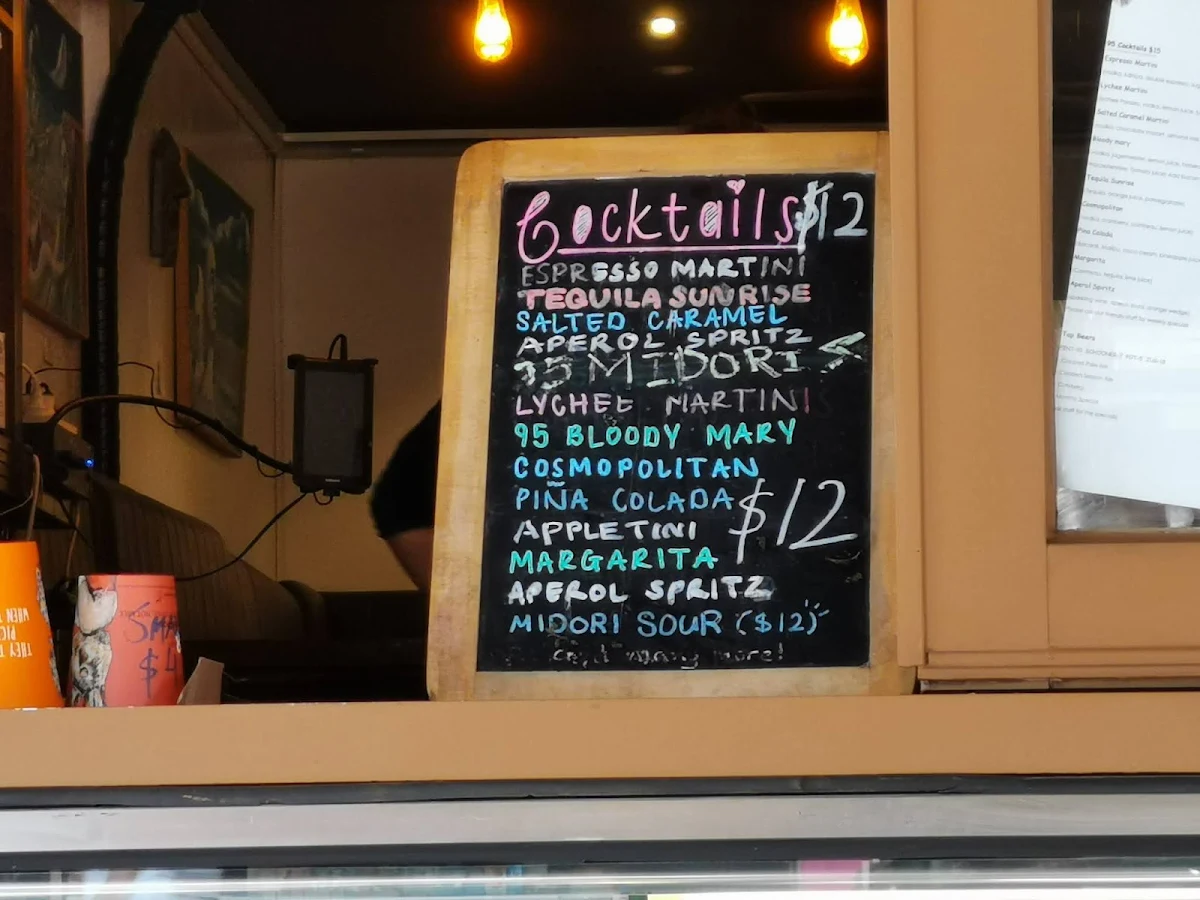 Cocktails $12
ESPRESSO MARTINI
TEQUILA SUNRISE
SALTED CARAMEL
APEROL SPRITZ
95 MIDORI
LYCHEE MARTINI
95 BLOODY MARY
COSMOPOLITAN
PIÑA COLADA
$12
APPLETINI
MARGARITA
APEROL SPRITZ
MIDORI SOUR ($12)
many more!
SMA
$4
THEY
PIC
WHEN
95 Cocktails $15
Espresso Martini
Lychee Martini
Salted Caramel Martini
Bloody mary
Tequila Sunrise
Cosmopolitan
Pina Colada
Margarita
Aperol Spiritz
Tap Beers